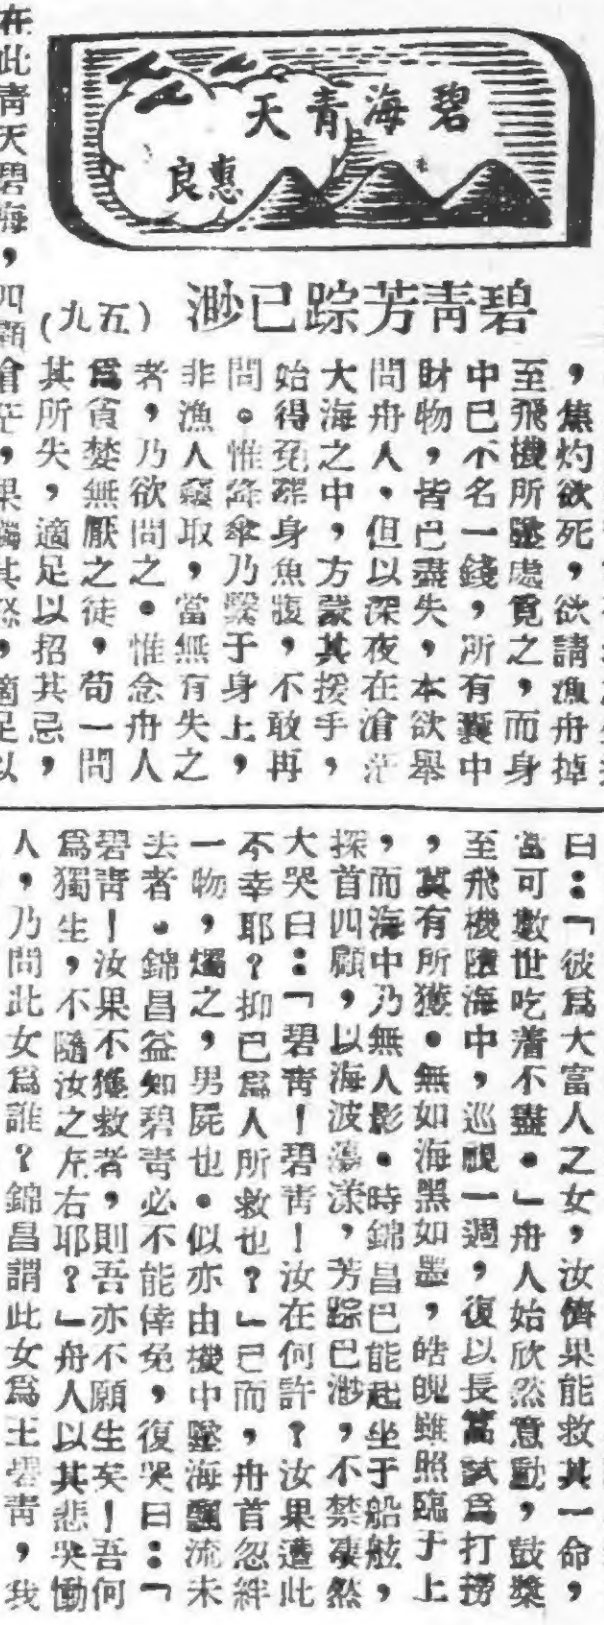 碧海青天
惠良
碧青芳踪已渺
(五九)
，焦灼欲死，欲請漁舟掉
至飛機所墜處覓之，而身
中已不名一錢，所有囊中
財物，皆已盡失，本欲舉
問舟人。但以深夜在滄茫
大海之中，方蒙其援手，
始得免葬身魚腹，不敢再
問。惟降傘乃繫于身上，
非漁人竊取，當無有失之
者，乃欲問之。惟念舟人
爲貪婪無厭之徒，苟一問
其所失，適足以招其忌，
在此青天碧海，四顧滄茫，果觸其怒，適足以
曰：「彼爲大富人之女，汝儕果能救其一命，
當可數世吃着不盡。」舟人始欣然意動，鼓槳
至飛機墮海中，巡視一週，復以長篙試爲打撈
，冀有所獲。無如海黑如墨，皓魄雖照臨于上
，而海中乃無人影。時錦昌已能起坐于船舷，
探首四顧，以海波蕩漾，芳踪已渺，不禁凄然
大哭曰：「碧青！碧青！汝在何許？汝果遭此
不幸耶？抑已爲人所救也？」已而，舟首忽絆
一物，燭之，男屍也。似亦由機中墜海飄流未
去者。錦昌益知碧青必不能倖免，復哭曰：「
碧青！汝果不獲救者，則吾亦不願生矣！吾何
爲獨生，不隨汝之左右耶？」舟人以其悲哭慟
人，乃問此女爲誰？錦昌謂此女爲王碧青，我